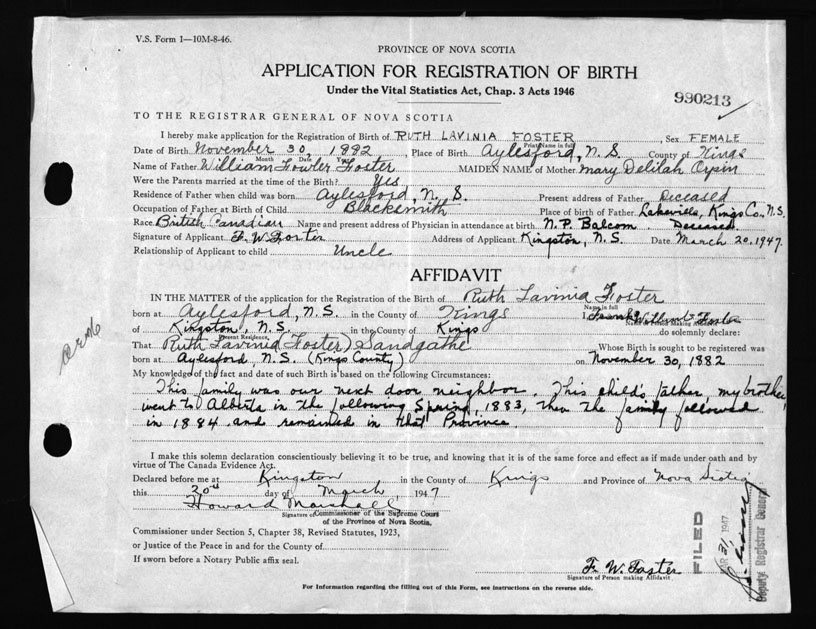 V.S. Form 1—10M-8-46.
PROVINCE OF NOVA SCOTIA
APPLICATION FOR REGISTRATION OF BIRTH
Under the Vital Statistics Act, Chap. 3 Acts 1946
990213
TO THE REGISTRAR GENERAL OF NOVA SCOTIA
I hereby make application for the Registration of Birth of RUTH LAVINIA FOSTER, Sex FEMALE
Print Name in full
Date of Birth November 30, 1882, Place of Birth Aylesford, N. S. County of Kings
Month Date Year
Name of Father William Fowler Foster MAIDEN NAME of Mother Mary Delilah
Were the Parents married at the time of the Birth? Yes
Residence of Father when child was born Aylesford, N. S. Present address of Father Deceased
Occupation of Father at Birth of Child Blacksmith Place of birth of Father Lakeville, Kings Co., N.S.
Race British Canadian Name and present address of Physician in attendance at birth N. P. Balcom. Deceased.
Signature of Applicant F. W. Foster Address of Applicant Kingston, N. S. Date March 20, 1947.
Relationship of Applicant to child Uncle
AFFIDAVIT
IN THE MATTER of the application for the Registration of Birth of Ruth Lavinia Foster
Name in full
born at Aylesford, N. S. in the County of Kings I, Frank William Foster
Name of Person Making Affidavit
of Kingston, N. S. in the County of Kings do solemnly declare:
Present Residence
That Ruth Lavinia (Foster) Sandgathe Whose Birth is sought to be registered was
born at Aylesford, N. S. (Kings County) on November 30, 1882
My knowledge of the fact and date of such Birth is based on the following Circumstances:
This family was our next door neighbor. This child's father, my brother,
went to Alberta in the following Spring, 1883, then the family followed
in 1884 and remained in that Province
I make this solemn declaration conscientiously believing it to be true, and knowing that it is of the same force and effect as if made under oath and by
virtue of The Canada Evidence Act.
Declared before me at Kingston in the County of Kings and Province of Nova Scotia
this 20th day of March, 1947
Howard Marshall
Signature of Commissioner of the Supreme Court
of the Province of Nova Scotia.
Commissioner under Section 5, Chapter 38, Revised Statutes, 1923,
or Justice of the Peace in and for the County of
If sworn before a Notary Public affix seal.
F. W. Foster
Signature of Person making Affidavit
For Information regarding the filling out of this Form, see instructions on the reverse side.
FILED
31 1947
Deputy Registrar General